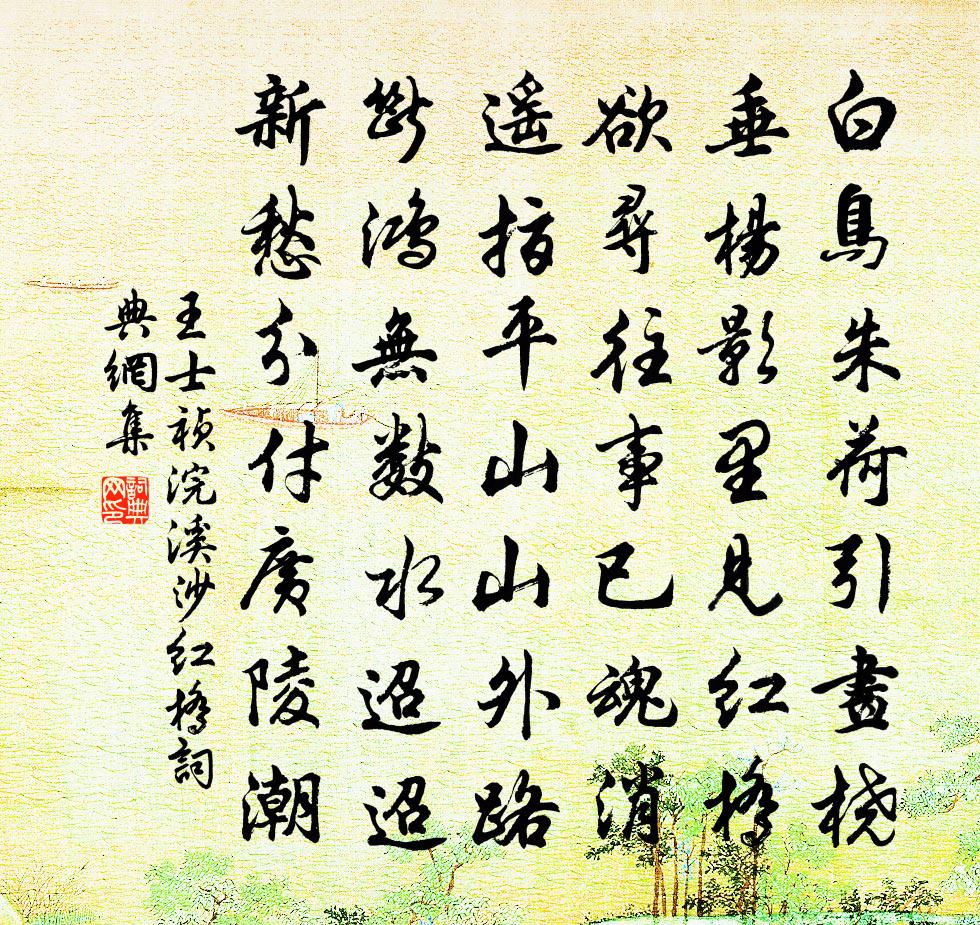 白鳥朱荷引畫橈
垂楊影里見紅橋
欲尋往事已魂消
遥指平山山外路
斷鴻無數水迢迢
新愁分付廣陵潮
王士禎浣溪沙紅橋詞
典網集
詞典
网印